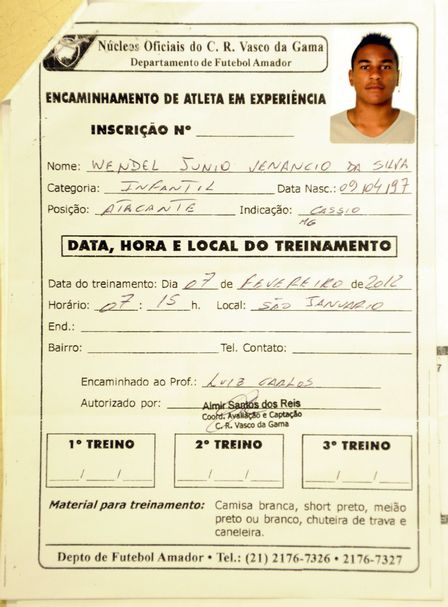 Núcleos Oficiais do C. R. Vasco da Gama
Departamento de Futebol Amador
ENCAMINHAMENTO DE ATLETA EM EXPERIÊNCIA
INSCRIÇÃO Nº
Nome: WENDEL JUNIO VENANCIO DA SILVA
Categoria: INFANTIL Data Nasc.: 09/04/97
Posição: ATACANTE Indicação: CASSIO
MG
DATA, HORA E LOCAL DO TREINAMENTO
Data do treinamento: Dia 07 de FEVEREIRO de 2012
Horário: 07 : 15 h. Local: SÃO JANUARIO
End.:
Bairro: Tel. Contato:
Encaminhado ao Prof.: LUIZ CARLOS
Autorizado por: Almir Santos dos Reis
Coord. Avaliação e Captação
C. R. Vasco da Gama
1º TREINO 2º TREINO 3º TREINO
/ / / / / /
Material para treinamento: Camisa branca, short preto, meião
preto ou branco, chuteira de trava e
caneleira.
Depto de Futebol Amador • Tel.: (21) 2176-7326 • 2176-7327